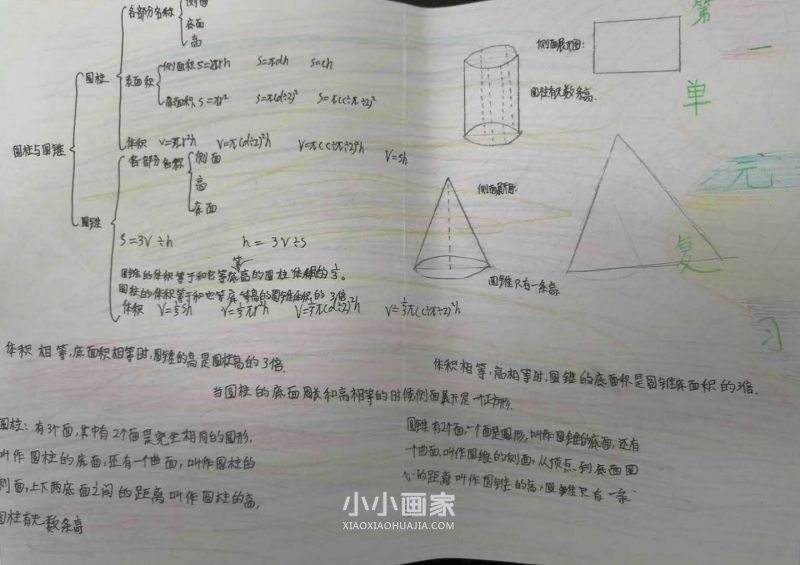 圆柱与圆锥
圆柱
各部分名称
侧面
底面
高
表面积
侧面积 S=2πrh S=πdh S=ch
底面积 S=πr² S=π(d÷2)² S=π(c÷π÷2)²
体积 V=πr²h V=π(d÷2)²h V=π(c÷π÷2)²h V=sh
圆锥
各部分名称
侧面
高
底面
S=3V÷h h=3V÷s
圆锥的体积等于和它等底等高的圆柱体积的⅓。
圆柱的体积等于和它等底等高的圆锥体积的3倍。
体积 V=⅓sh V=⅓πr²h V=⅓π(d÷2)²h V=⅓π(c÷π÷2)²h
侧面展开图:
圆柱有无数条高.
侧面展开图:
圆锥只有一条高
第一单元复习
体积相等,底面积相等时,圆锥的高是圆柱高的3倍.
体积相等,高相等时,圆锥的底面积是圆锥底面积的3倍.
当圆柱的底面周长和高相等的时候侧面展开是一个正方形.
圆柱:有3个面,其中有2个面是完全相同的圆形,
叫作圆柱的底面,还有一个曲面,叫作圆柱的
侧面,上下两底面之间的距离叫作圆柱的高,
圆柱有无数条高
圆锥有2个面,一个面是圆形,叫作圆锥的底面,还有
一个曲面,叫作圆锥的侧面,从顶点到底面圆
心的距离叫作圆锥的高,圆锥只有一条
小小画家
XIAOXIAOHUAJIA.COM